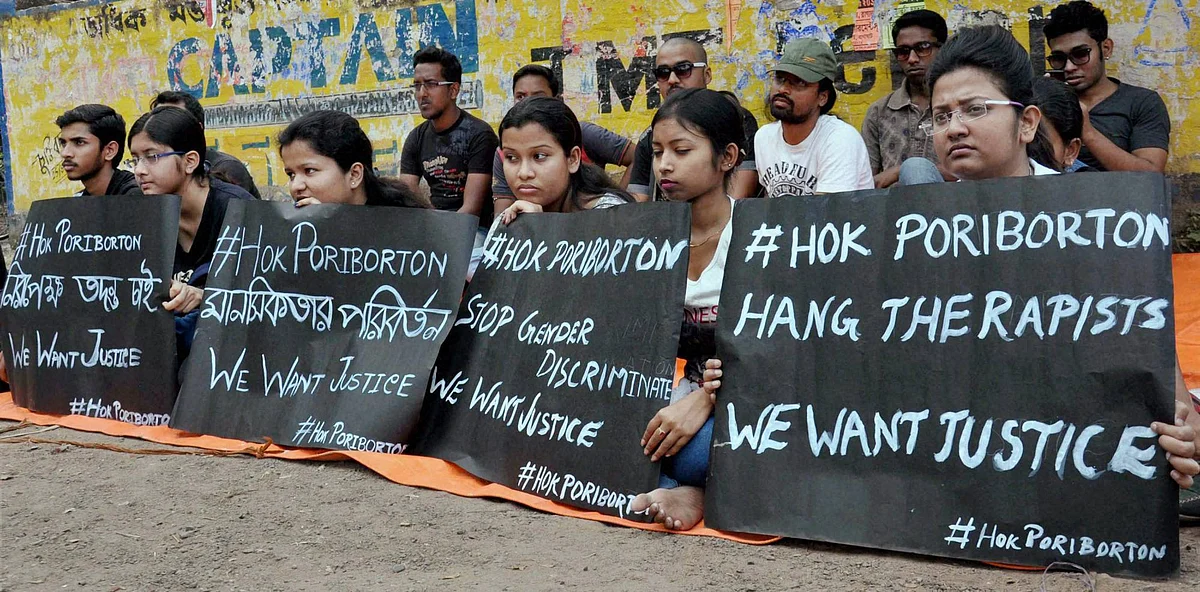 CAPTAIN
TMC
#HOK PORIBORTON
নিরপেক্ষ তদন্ত চাই
WE WANT JUSTICE
#HOK PORIBORTO
#HOK PORIBORTON
মানসিকতার পরিবর্তন
WE WANT JUSTICE
#HOK PORIBORTON
#HOK PORIBORTON
STOP GENDER
DISCRIMINATE
WE WANT JUSTICE
#HOK PORIBORT
#HOK PORIBORTON
HANG THE RAPISTS
WE WANT JUSTICE
#HOK PORIBORTON